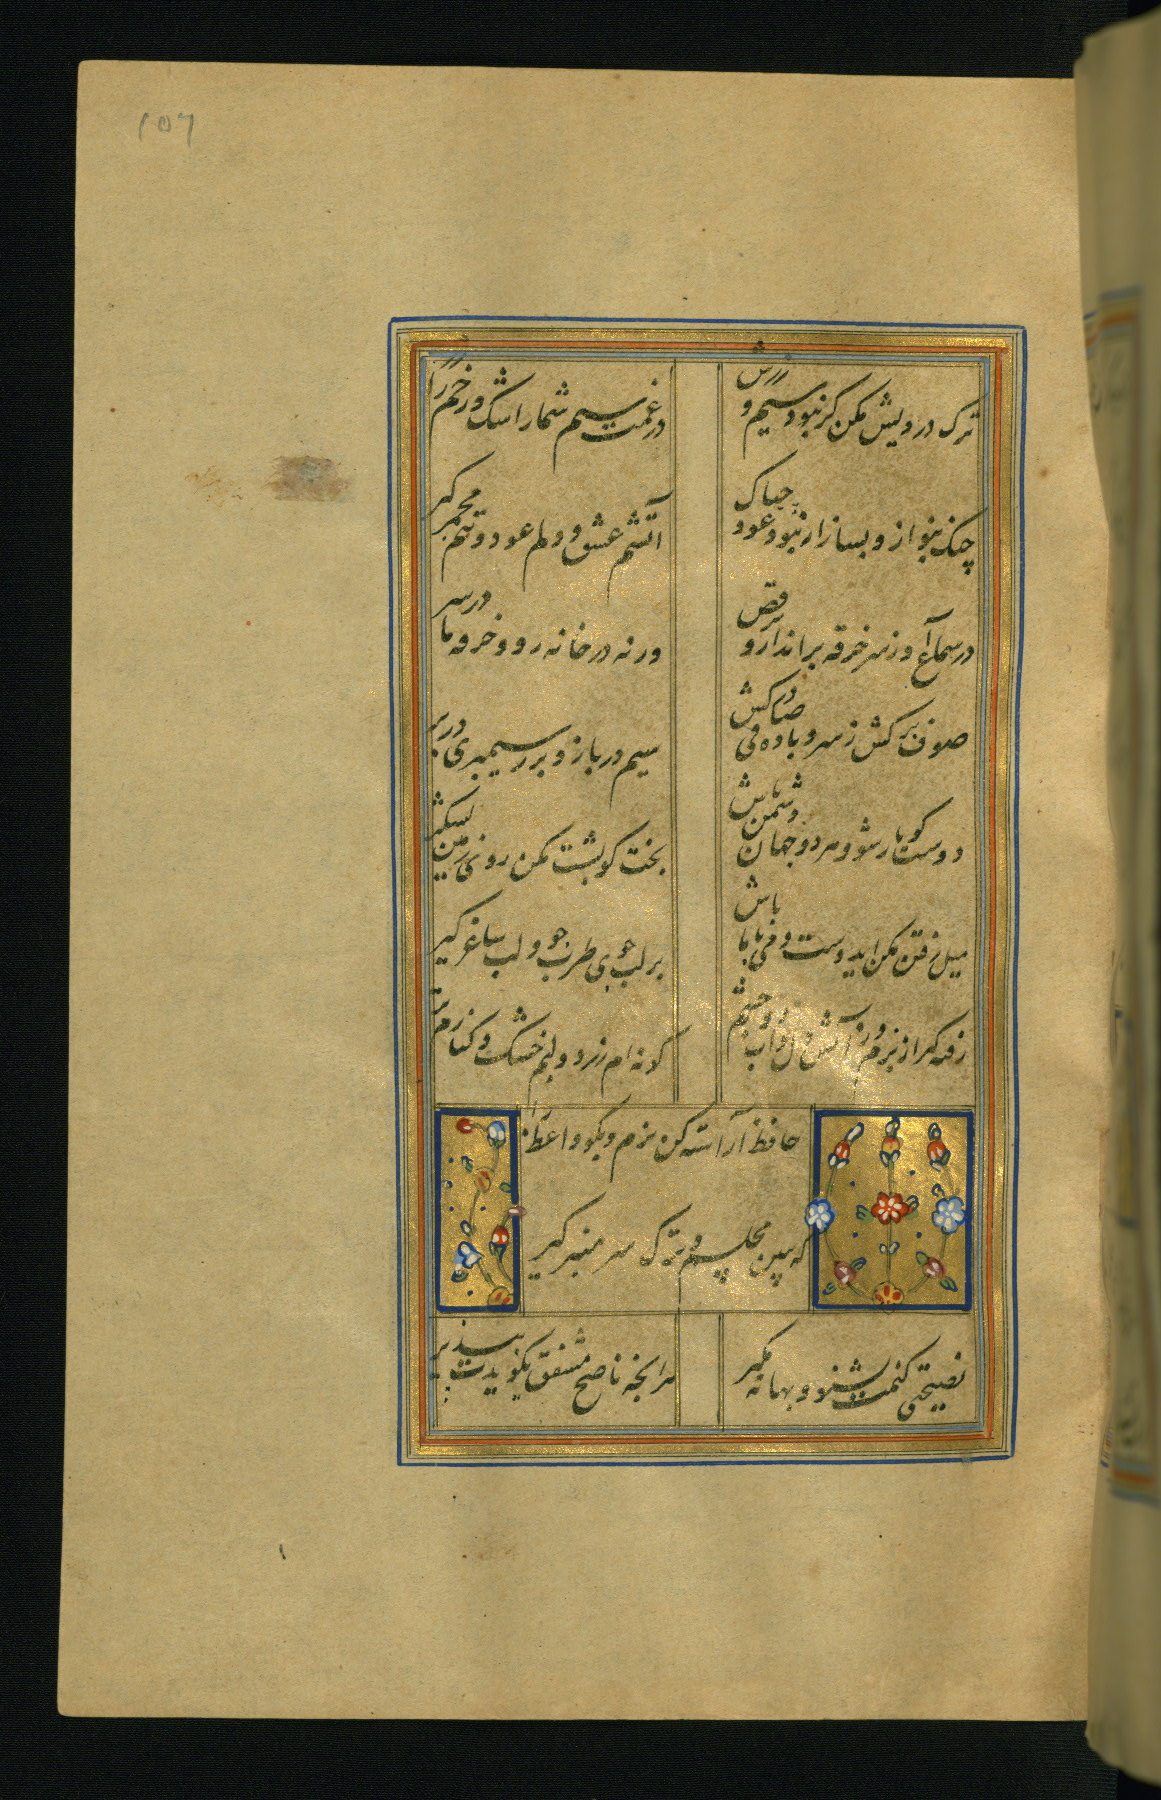 ۱۵۶
ترک درویش مکن گر نبود سیم و زرش
در غمت سیم شمار اشک و رخم را زر گیر
چنک بنواز و بساز ار نبود عود چباک
آتشم عشق و دلم عود و تنم مجمر گیر
در سماع آ و ز سر خرقه برانداز و برقص
ورنه در خانه رو و خرقه ما در سر
صوف برکش ز سر و باده صافی درکش
سیم درباز و بزر سیمبری در بر
دوست کو یار شو و هر دو جهان دشمن باش
بخت کو پشت مکن روی زمین لشکر
میل رفتن مکن ایدوست دمی با ما باش
بر لب جوی طرب جو و لب ساغر گیر
رفته گیر از برم و ز آتش و آب دل و چشم
گونه ام زرد و لبم خشک و کنارم تر
حافظ آراسته کن بزم و بگو واعظ را
که ببین مجلسم و ترک سر منبر گیر
نصیحتی کنمت بشنو و بهانه مگیر
هر آنچه ناصح مشفق بگویدت بپذیر